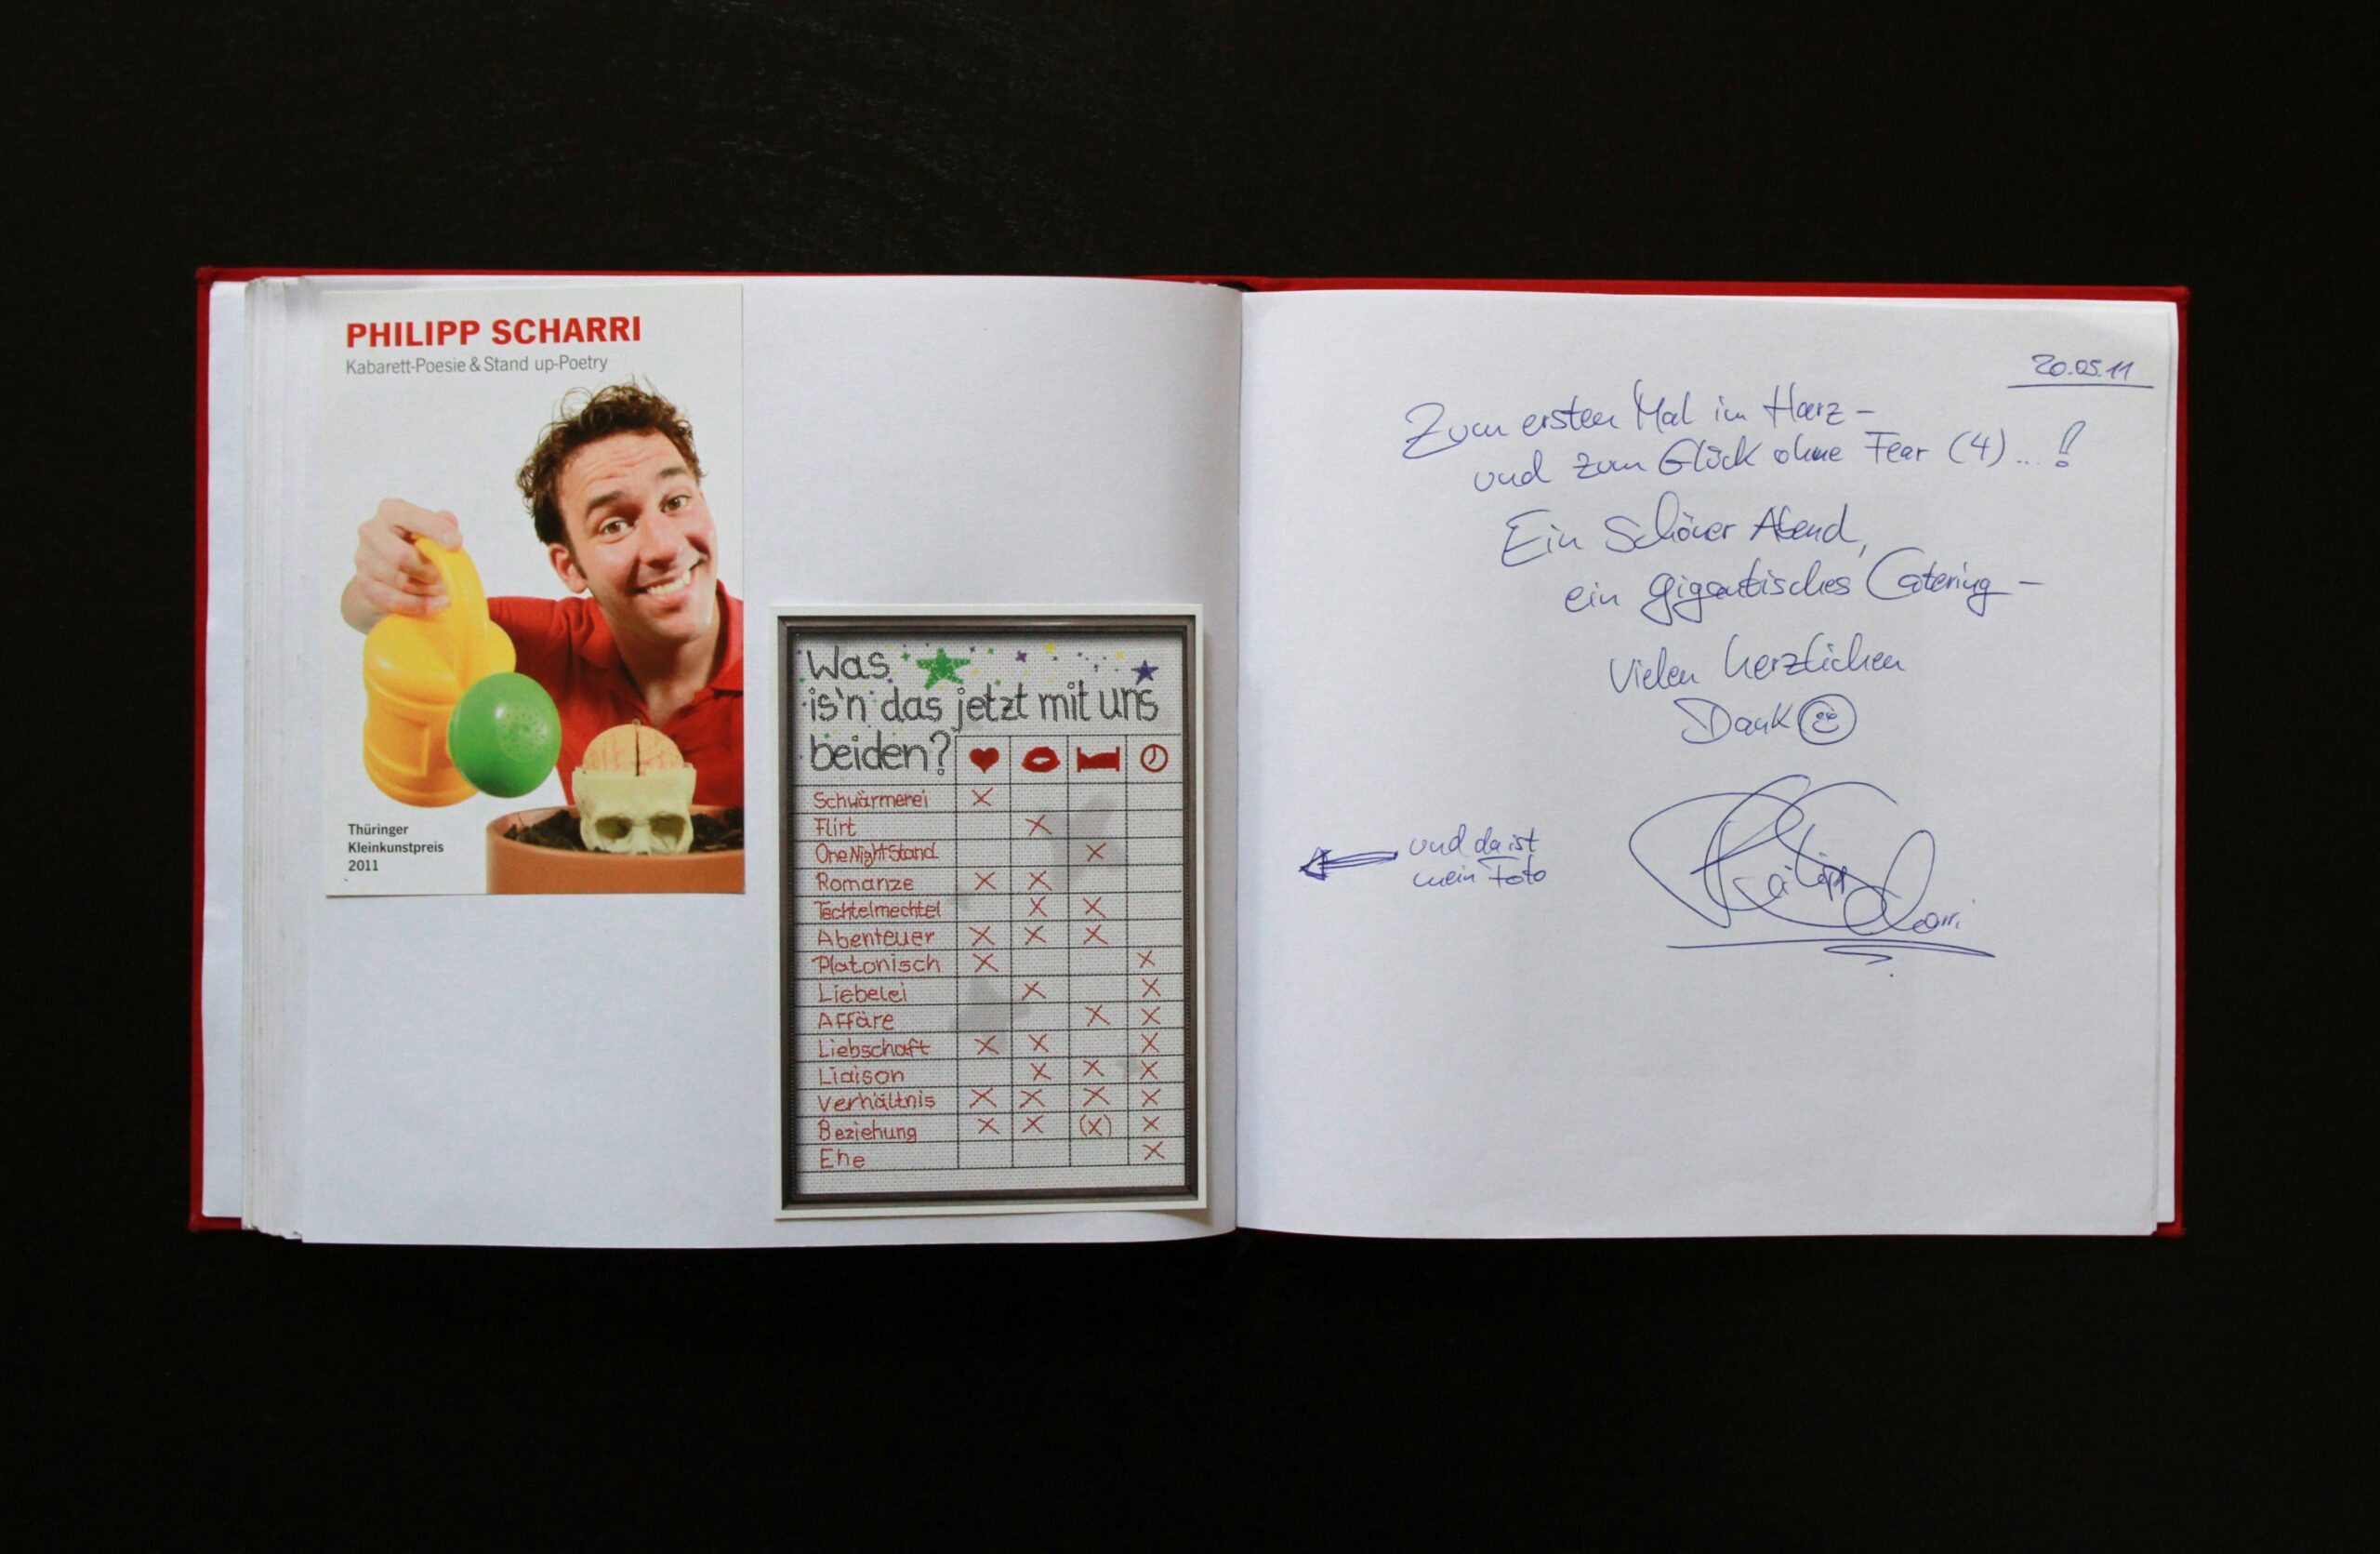 PHILIPP SCHARRI
Kabarett-Poesie & Stand up-Poetry
Thüringer
Kleinkunstpreis
2011
Was
is'n das jetzt mit uns
beiden?
Schwärmerei X
Flirt X
One Night Stand X
Romanze X X
Techtelmechtel X X
Abenteuer X X X
Platonisch X X
Liebelei X X
Affäre X X
Liebschaft X X X
Liaison X X X
Verhältnis X X X X
Beziehung X X (X) X
Ehe X
20.05.11
Zum ersten Mal im Harz –
und zum Glück ohne Fear (4)...!
Ein schöner Abend,
ein gigantisches Catering –
Vielen herzlichen
Dank
und da ist
mein Foto
Philipp Scharri